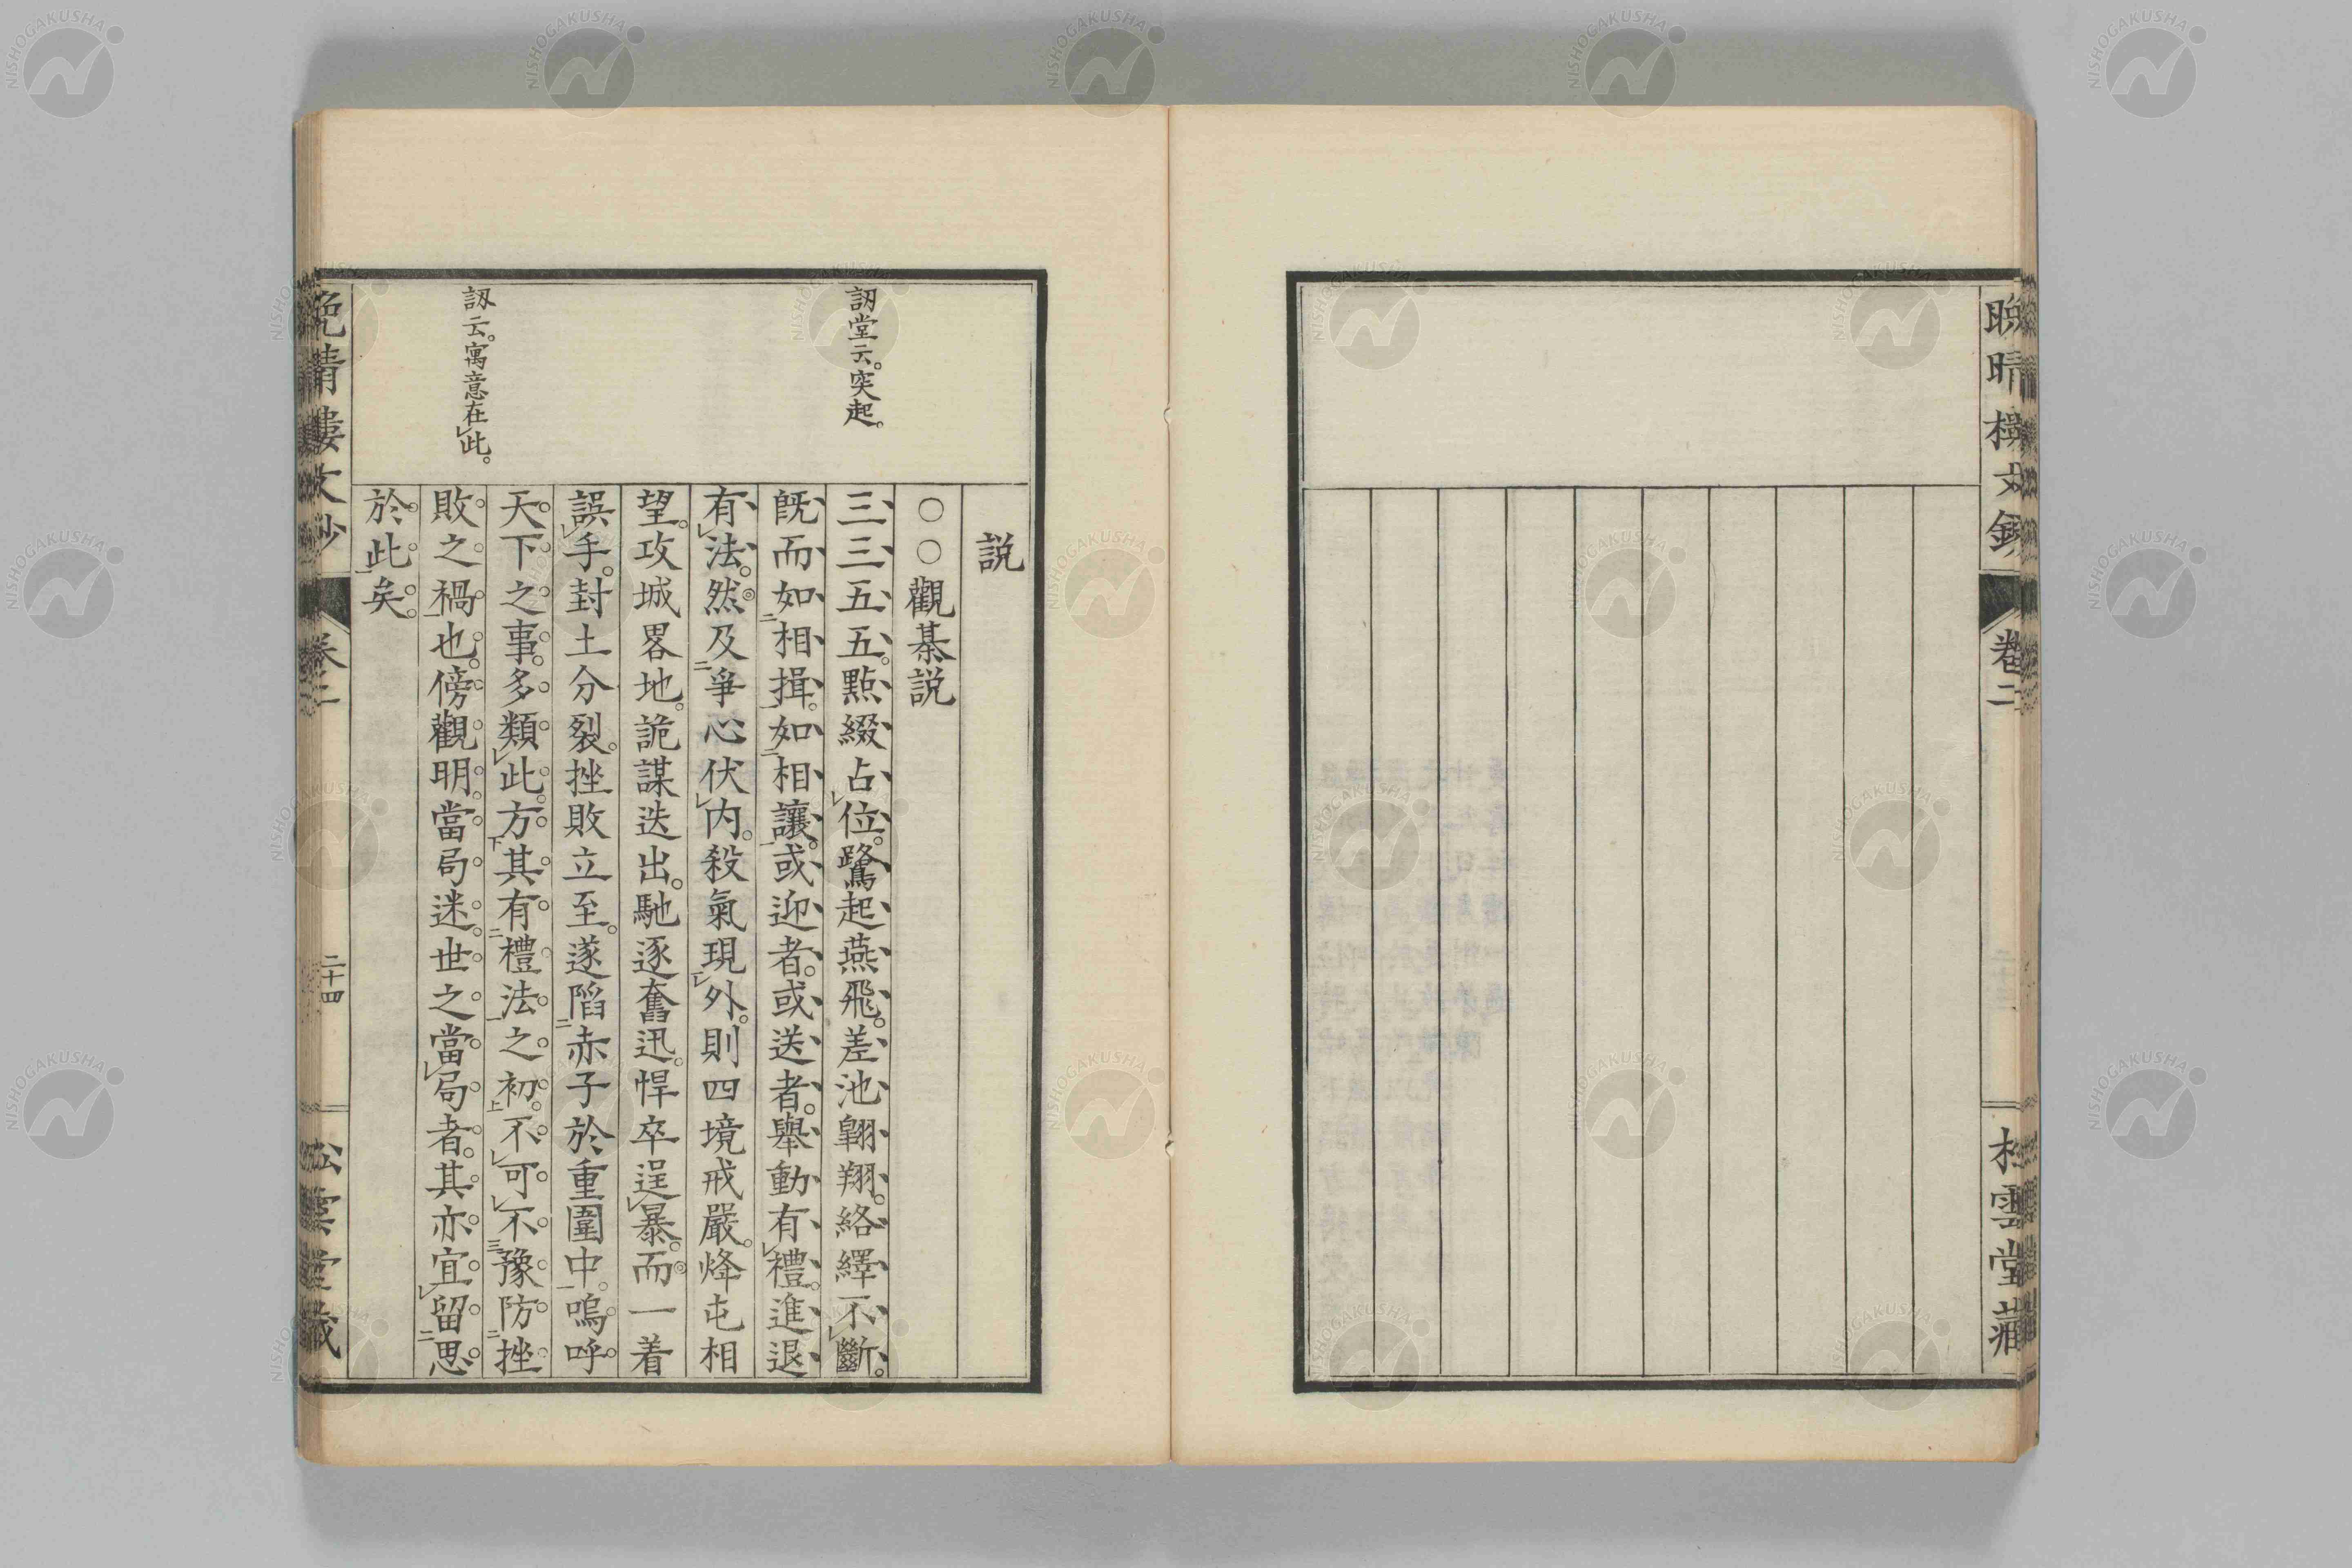 晩晴樓文鈔 卷二 松雲堂藏
説
○○觀棊説
三三五五。點綴占位。鷺起燕飛。差池翶翔。絡繹不斷。
既而如相揖。如相讓。或迎者。或送者。擧動有禮。進退
有法。然及爭心伏内。殺氣現外。則四境戒嚴。烽屯相
望。攻城畧地。詭謀迭出。馳逐奮迅。悍卒逞暴。而一着
誤手。封土分裂。挫敗立至。遂陷赤子於重圍中。嗚呼
天下之事。多類此。方其有禮法之初。不可不豫防挫
敗之禍也。傍觀明。當局迷。世之當局者。其亦宜留思
於此矣。
訒堂云。突起。
訒云。寓意在此。
晩晴樓文鈔 卷二 二十四 松雲堂藏
NISHOGAKUSHA